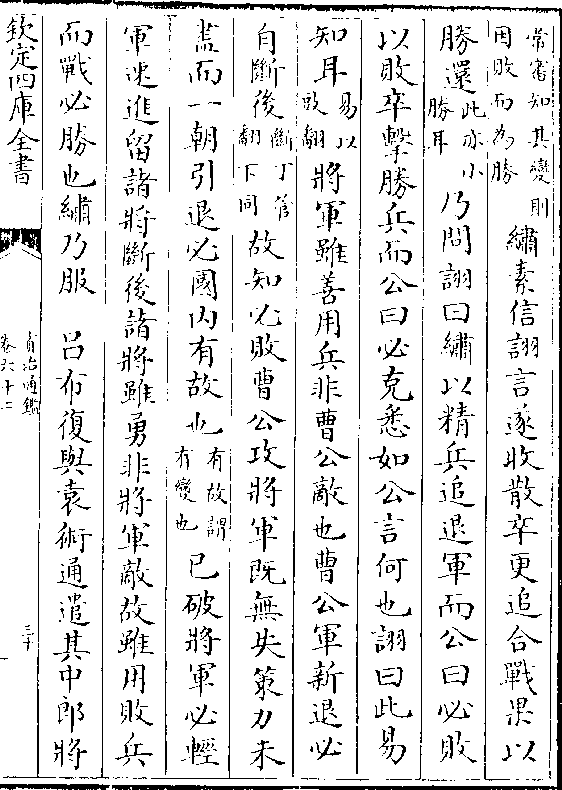 常審知其變則因敗而為勝繡素信詡言遂收散卒更追合戰果以
勝還此亦小勝耳乃問詡曰繡以精兵追退軍而公曰必敗
以敗卒擊勝兵而公曰必克悉如公言何也詡曰此易
知耳易以豉翻將軍雖善用兵非曹公敵也曹公軍新退必
自斷後斷丁管翻下同故知必敗曹公攻將軍既無失策力未
盡而一朝引退必國内有故也有故謂有變也已破將軍必輕
軍速進留諸將斷後諸將雖勇非將軍敵故雖用敗兵
而戰必勝也繡乃服 吕布復與袁術通遣其中郎將
欽定四庫全書
資治通鑑
卷六十二
三十